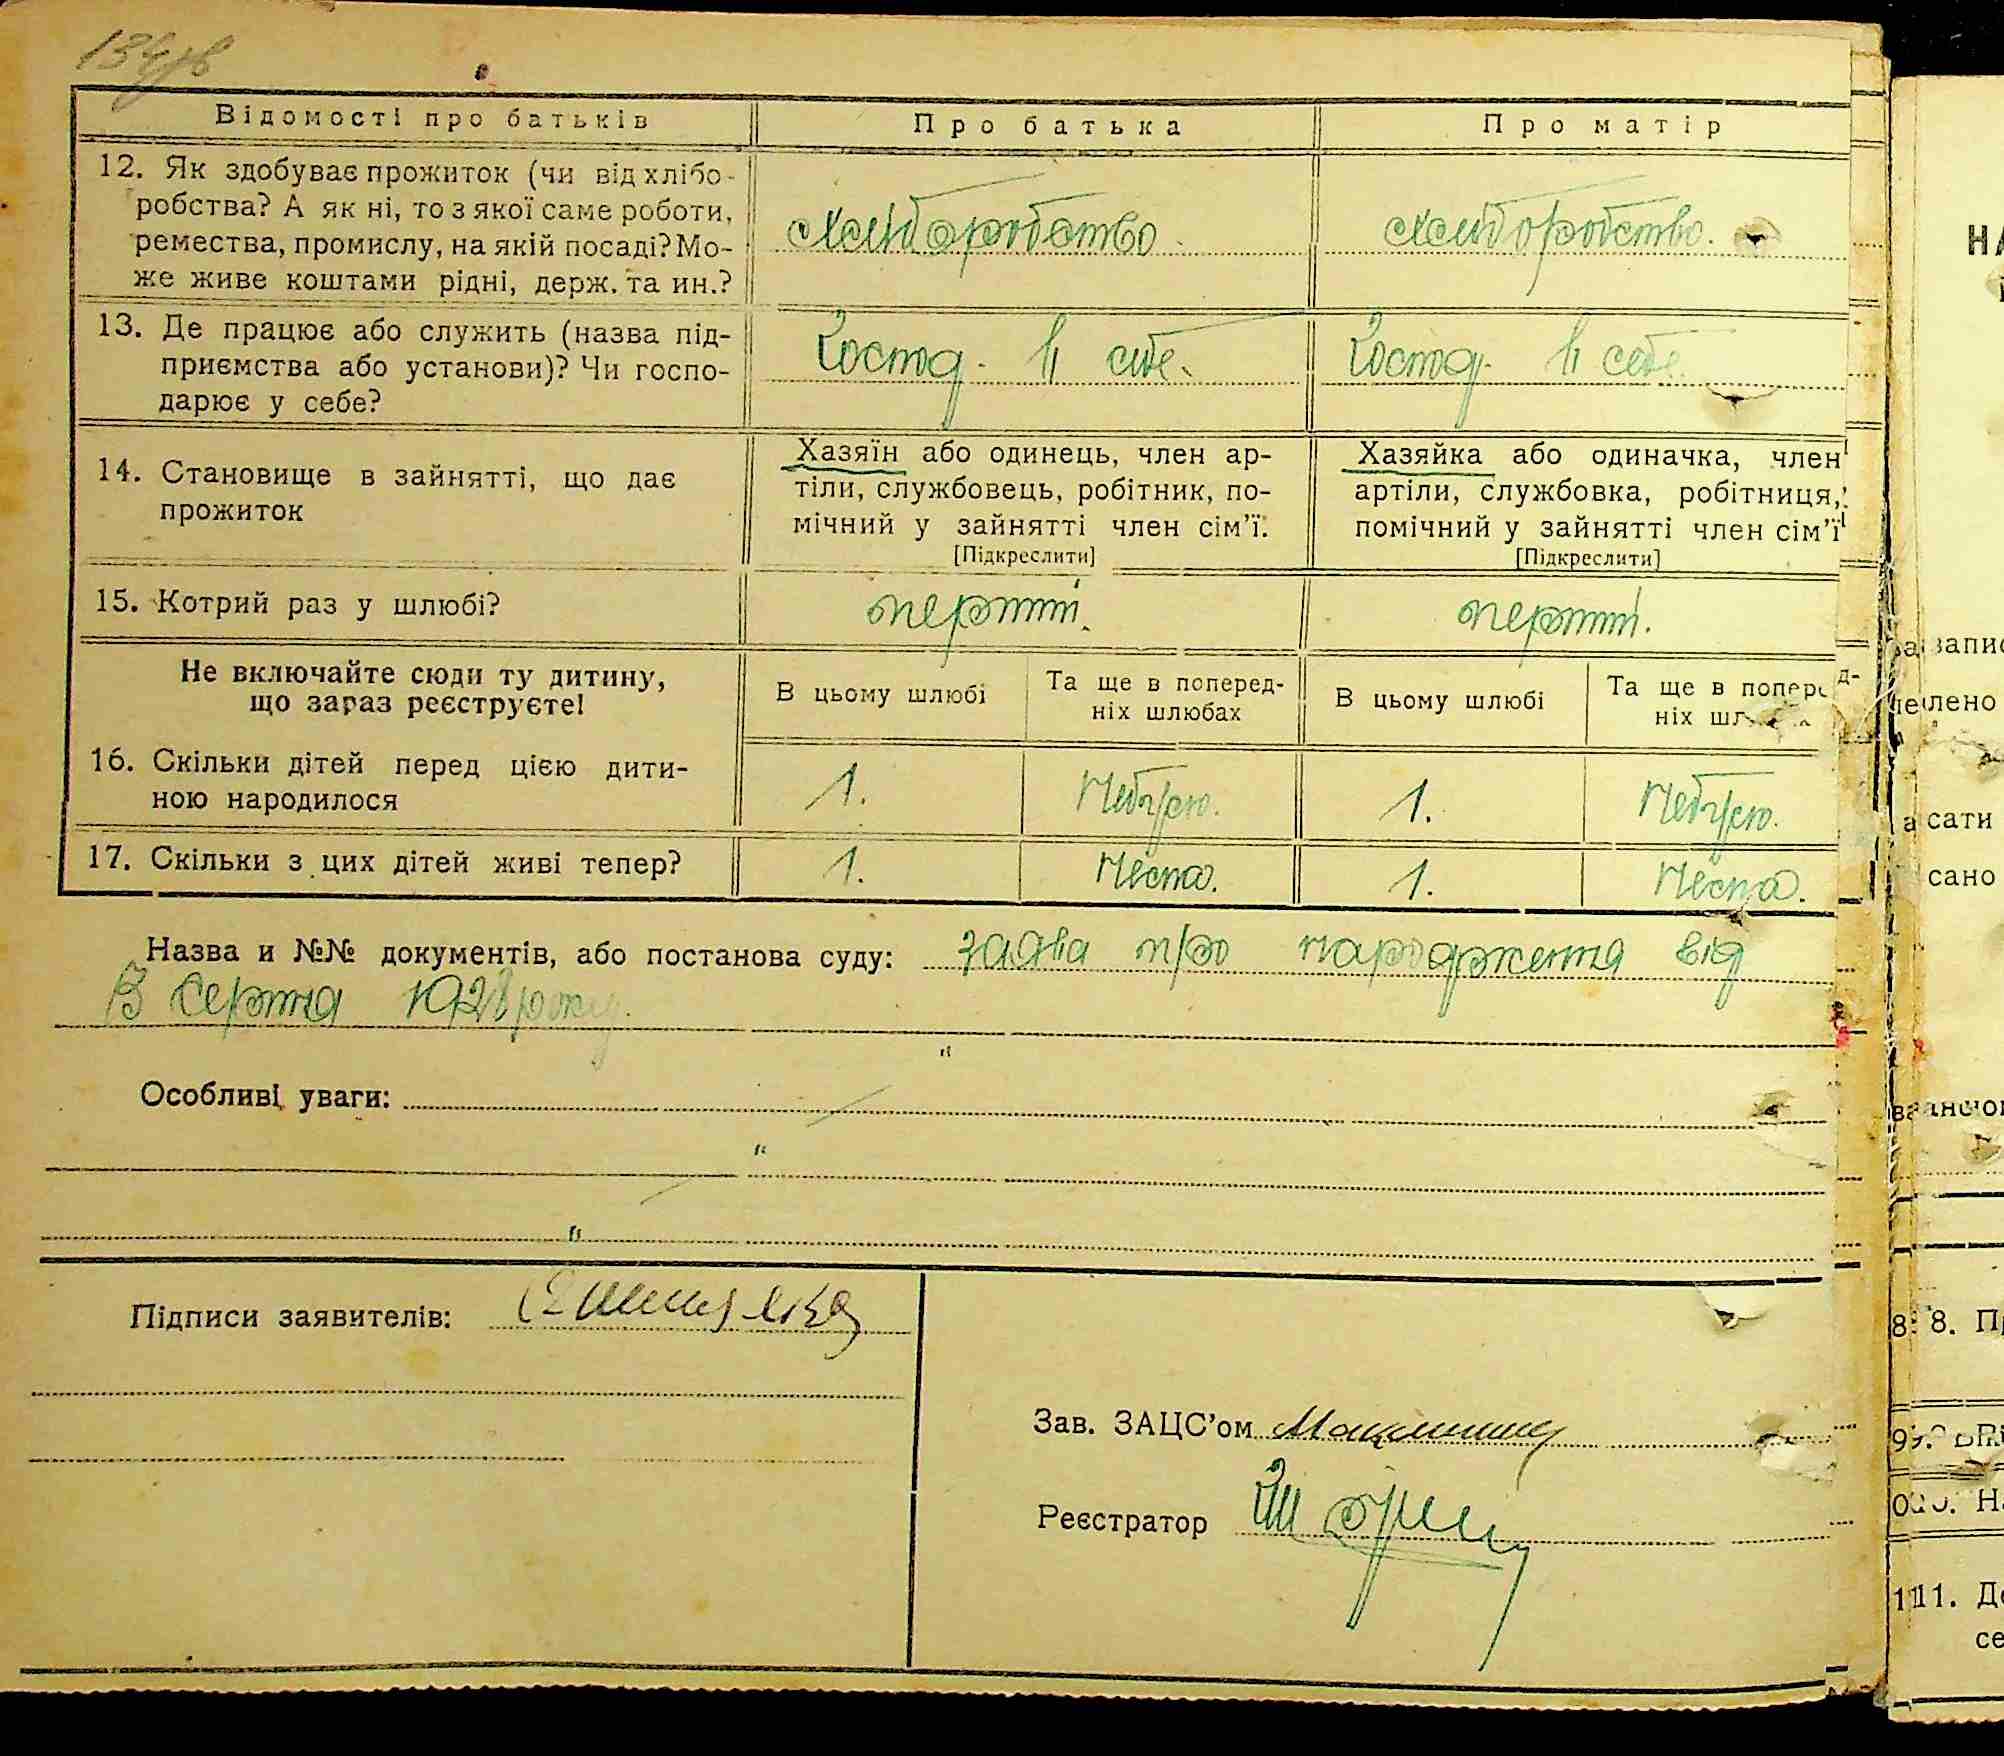 134зв
Відомості про батьків
Про батька
Про матір
12. Як здобуває прожиток (чи від хлібо-
робства? А як ні, то з якої саме роботи,
ремества, промислу, на якій посаді? Мо-
же живе коштами рідні, держ. та ин.?
хліборобство
хліборобство.
13. Де працює або служить (назва під-
приємства або установи)? Чи госпо-
дарює у себе?
Господ. у себе.
Господ. у себе.
14. Становище в зайнятті, що дає
прожиток
Хазяїн або одинець, член ар-
тіли, службовець, робітник, по-
мічний у зайнятті член сім'ї.
[Підкреслити]
Хазяйка або одиначка, член
артіли, службовка, робітниця,
помічний у зайнятті член сім'ї
[Підкреслити]
15. Котрий раз у шлюбі?
перший.
перший.
Не включайте сюди ту дитину,
що зараз реєструєте!
В цьому шлюбі
Та ще в поперед-
ніх шлюбах
В цьому шлюбі
Та ще в поперед-
ніх
16. Скільки дітей перед цією дити-
ною народилося
1.
Небуло.
1.
Небуло.
17. Скільки з цих дітей живі тепер?
1.
Нема.
1.
Нема.
Назва и №№ документів, або постанова суду: заява про народження від
серпня 192 року.
"
Особливі уваги:
"
"
Підписи заявителів:
Зав. ЗАЦС'ом
Реєстратор
НА
запис
лено
сати
сано
8. П
9.
Н
11. Де
се